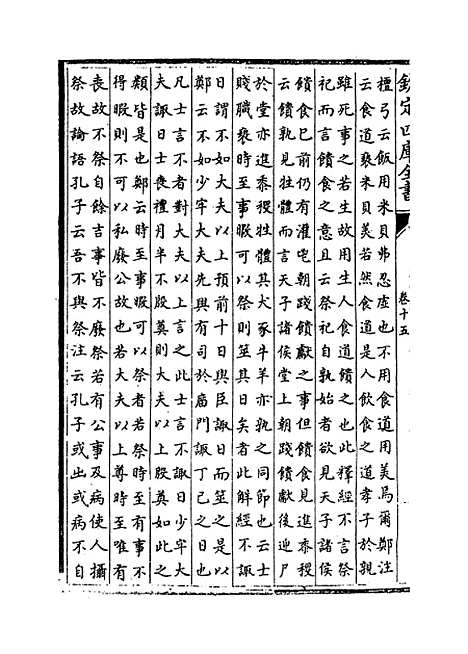 欽定四庫全書
卷十五
檀弓云飯用米貝弗忍虛也不用食道用美焉爾鄭注
云食道褻米貝美若然食道是人飲食之道孝子於親
雖死事之若生故用生人食道饋之也此釋經不言祭
祀而言饋食之意且云祭祀自孰始者欲見天子諸侯
饋食已前仍有灌鬯朝踐饋獻之事但饋食見進黍稷
云饋孰見牲體而言天子諸侯堂上朝踐饋獻後迎尸
於堂亦進黍稷牲體其犬豕牛羊亦孰之同節也云士
賤職褻時至事暇可以祭則筮其日矣者此解經不諏
日謂不如大夫以上預前十日與臣諏日而筮之是以
鄭云不如少牢大夫先與有司於廟門諏丁己之日也
凡士言不者對大夫以上言之此士言不諏日少牢大
夫諏日士喪禮月半不殷奠則大夫以上殷奠如此之
類皆是也鄭云時至事暇可以祭者若祭時至有事不
得暇則不可以私廢公故也若大夫以上尊時至唯有
喪故不祭自餘吉事皆不廢祭若有公事及病使人攝
祭故論語孔子云吾不與祭注云孔子或出或病不自